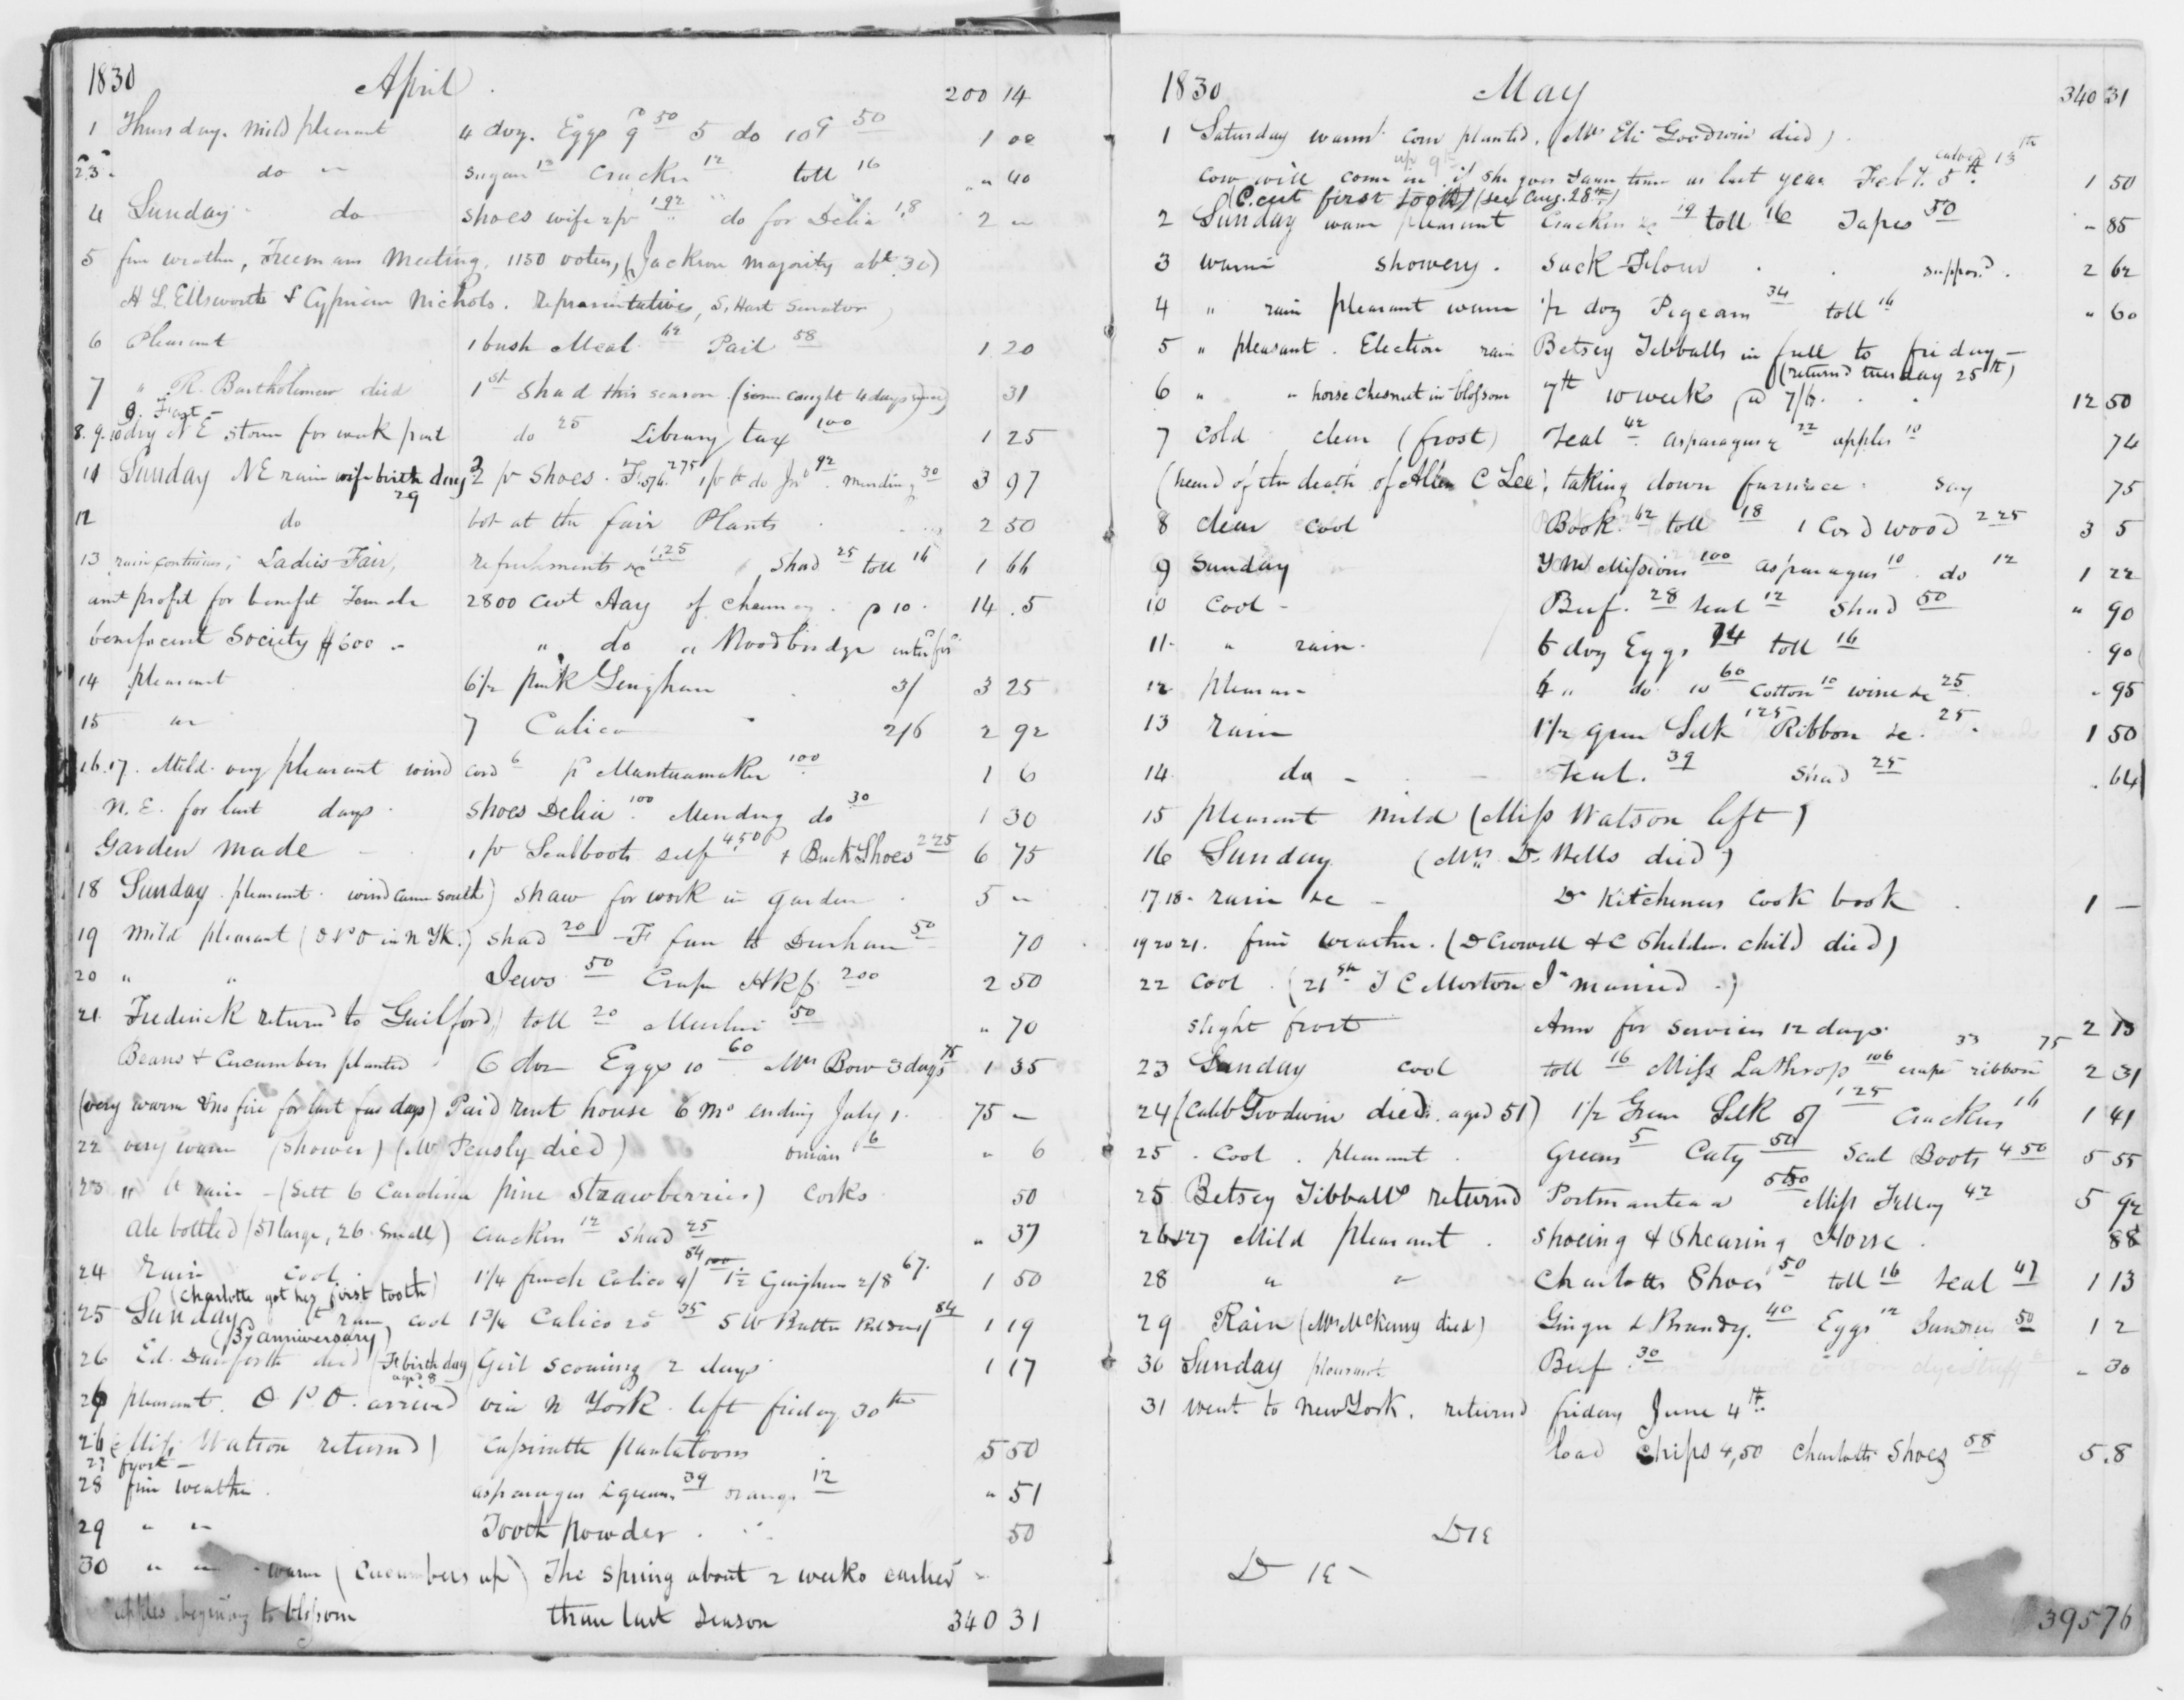 1830 April. 200 14
1 Thursday. mild pleasant 4 doz. Eggs 9 50 5 do 10 9 50 1 00
2 3. do " sugar 12 Cracker 12 toll 16 " 40
4 Sunday do shoes wife 2 pr 1 92 do for Delia 1,8 2 "
5 fine weather, Freemans Meeting, 1150 votes, (Jackson majority abt 30)
H L. Ellsworth & Cyprian Nichols. Representatives, S. Hart Senator)
6 Pleasant 1 bush Meal 62 Pail 58 1 20
7 " R. Bartholomew died 1st Shad this season (some caught 4 days since) 31
9. Fast -
8. 9. 10 dry N E storm for week past do 25 Library tax 100 1 25
11 Sunday N E rain wife birth day 29 2 pr Shoes. 275 1 pr do 92 mending 30 3 97
12 do bot at the fair Plants 2 50
13 rain continues, Ladies Fair, refreshments &c 1,25 Shad 25 toll 16 1 66
amt profit for benefit Female 2800 cwt Hay of Chauncy. 10. 14. 5
beneficent Society $600 - " do " Woodbridge
14 pleasant 6 1/2 pink Gingham 3/ 3 25
15 " 7 Calico 2/6 2 92
16. 17. Mild. very pleasant wind cord 6 pd Mantuamaker 100 1 6
N. E. for last days. Shoes Delia 100 Mending do 30 1 30
Garden made - 1 pr Sealboots self 4,50 & Buck Shoes 2 25 6 75
18 Sunday. pleasant. wind came south) Shaw for work in garden 5 "
19 mild pleasant (in N Yk.) Shad 20 F fare to Durham 50 70
20 " " Jews 50 Crape Hkf. 200 2 50
21. Frederick returnd to Guilford) toll 20 Muslin 50 " 70
Beans & Cucumbers planted 6 doz Eggs 10 60 Mrs Bow 3 days 75 1 35
(very warm & no fire for last few days) Paid rent house 6 mo ending July 1. 75 -
22 very warm (shower) (Mr Peasly died) onions 6 " 6
23 " lt rain - (Sett 6 Carolina pine Strawberries) Corks 50
Ale bottled (51 large, 26 small) Crackers 12 Shad 25 " 37
24 Rain cool 1 1/4 french Calico 4/ 84 1 1/2 Gingham 2/8 67. 1 50
(Charlotte got her first tooth)
25 Sunday lt rain, cool 1 3/4 Calico 20 35 5 lb Butter 84 1 19
(37 anniversary)
26 Ed. Danforth died (F birth day aged 8) Girl scouring 2 days 1 17
26 pleasant. O P O. arrived via N York. left friday 30th
26 (Miss Watson returnd) Cassimette pantaloons 5 50
27 frost -
28 fine weather. asparagus & greens 39 orange 12 " 51
29 " " Tooth powder. 50
30 " " warm (Cucumbers up) The spring about 2 weeks earlier
apples begining to blossom than last season 340 31
1830 May 340 31
1 Saturday warm corn planted. (Mr Eli Goodwin died)
calved 13th
cow will come in if she goes same time as last year Feby. 5th 1 50
(C. cut first tooth) (see Aug. 28th)
2 Sunday warm pleasant Crackers &c 19 toll 16 Tapes 50 " 85
3 warm showery. Sack Flour suppos'd. 2 62
4 " rain pleasant warm 1/2 doz Pigeons 34 toll 16 " 60
5 " pleasant. Election rain Betsey Tibballs in full to friday -
(returnd tuesday 25th)
6 " " horse chesnut in blossom 7th 10 weeks @ 7/6. 12 50
7 cold clear (frost) Veal 42 asparagus & 22 apples 10 74
(heard of the death of Allen C Lee). taking down furnace say 75
8 clear cool Book. 62 toll 18 1 Cord wood 2 25 3 5
9 Sunday Y M Missions 100 asparagus 10 do 12 1 22
10 Cool - Beef. 28 Veal 12 Shad 50 " 90
11. " rain. 6 doz Eggs 74 toll 16 90
12 pleasan- 6 " do 10 60 Cotton 10 wine &c 25 " 95
13 rain 1 1/2 Green Silk 125 Ribbon &c. 25 1 50
14 do - Veal. 39 Shad 25 64
15 pleasant mild (Miss Watson left)
16 Sunday (Mrs. D. Wells died)
17 18 - rain &c - Dr Kitcheners Cook book 1 -
19 20 21. fine weather. (D Crowell & C Sheldon child died)
22 cool. (21st J C Morton Jr married.)
slight frost Ann for services 12 days 2 13
23 Sunday cool toll 16 Miss Lathrop 106 crape 33 ribbon 75 2 31
24 (Caleb Goodwin died. aged 51) 1 1/2 Green Silk 1 25 Crackers 16 1 41
25. Cool. pleasant. Greens 5 Caty 50 Seal Boots 4 50 5 55
25 Betsey Tibballs returnd Portmanteau 550 Miss Tilley 42 5 92
26 & 27 Mild pleasant. shoeing & Shearing Horse. 88
28 " " Charlotte Shoes 50 toll 16 Veal 47 1 13
29 Rain (Mrs McKenny died) Ginger & Brandy. 40 Eggs 12 Sundries 50 1 2
30 Sunday pleasant Beef. 30 " 30
31 went to New York. returnd friday June 4th.
load chips 4,50 Charlotte Shoes 58 5. 8
395 76